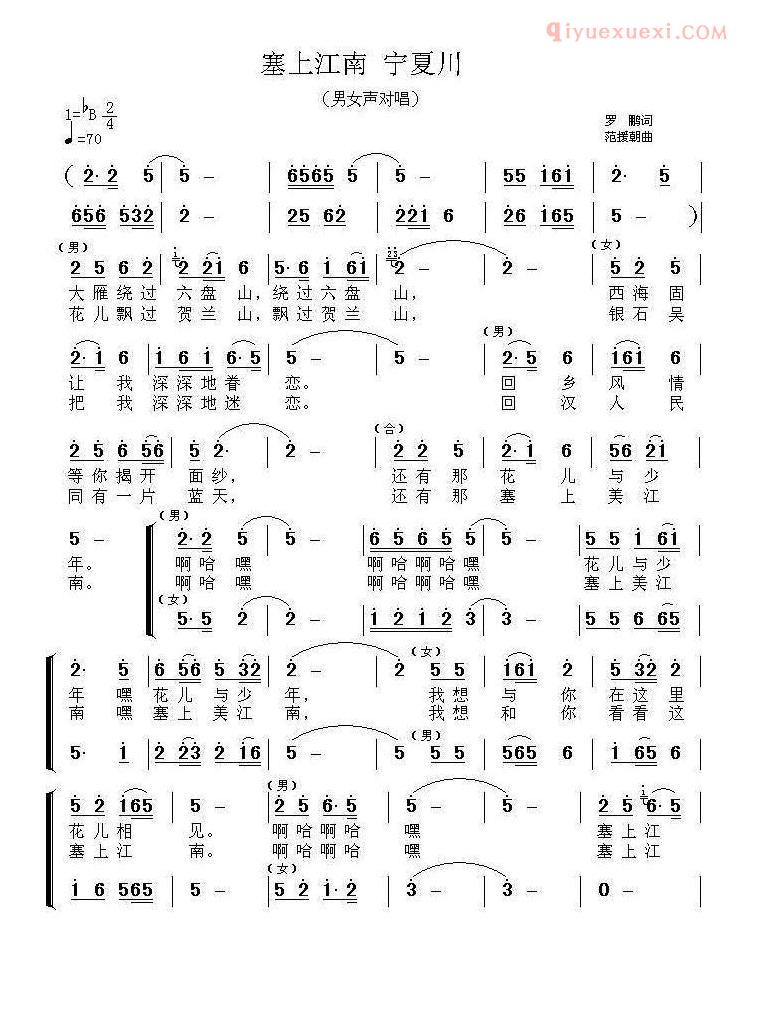 qiyuexuexi.com
塞上江南 宁夏川
（男女声对唱）
1=♭B 2/4
♩=70
罗 鹏词
范援朝曲
( 2· 2 5 | 5 - | 6565 5 | 5 - | 55 161 | 2· 5 |
656 532 | 2 - | 25 62 | 221 6 | 26 165 | 5 - ) |
（男） （女）
2 5 6 2 | 2 21 6 | 5· 6 1 61 | 2 - | 2 - | 5 2 5 |
大雁绕过 六盘山，绕过六盘 山， 西海固
花儿飘过 贺兰山，飘过贺兰 山， 银石吴
（男）
2· 1 6 | 1 6 1 6· 5 | 5 - | 5 - | 2 6 2 | 161 6 |
让 我 深深地眷 恋。 回 乡 风 情
把 我 深深地迷 恋。 回 汉 人 民
（合）
2 5 6 56 | 5 2· | 2 - | 5 5 5 | 2· 1 6 | 5 6 21 |
等你揭开 面纱， 还有那 花 儿 与少
同有一片 蓝天， 还有那 塞 上 美江
（男）
5 - | 2· 2 5 | 5 - | 6 5 6 5 5 | 5 - | 5 5 1 61 |
年。 啊哈嘿 啊哈啊哈嘿 花儿与少
南。 啊哈嘿 啊哈啊哈嘿 塞上美江
（女）
5· 5 2 | 2 - | 1 2 1 2 3 | 3 - | 5 5 6 65 |
（女）
2· 5 | 6 56 5 32 | 2 - | 2 5 5 | 161 2 | 5 32 5 |
年 嘿 花儿与少 年， 我想 与 你 在这里
南 嘿 塞上美江 南， 我想 和 你 看看这
（男）
5· 1 | 2 23 2 16 | 5 - | 5 5 5 | 565 6 | 1 65 6 |
（男）
5 2 165 | 5 - | 2 5 6· 5 | 5 - | 5 - | 2 5 6· 5 |
花儿相 见。 啊哈啊哈 嘿 塞上江
塞上江 南。 啊哈啊哈 嘿 塞上江
（女）
1 6 565 | 5 - | 5 2 1· 2 | 3 - | 3 - | 0 - |